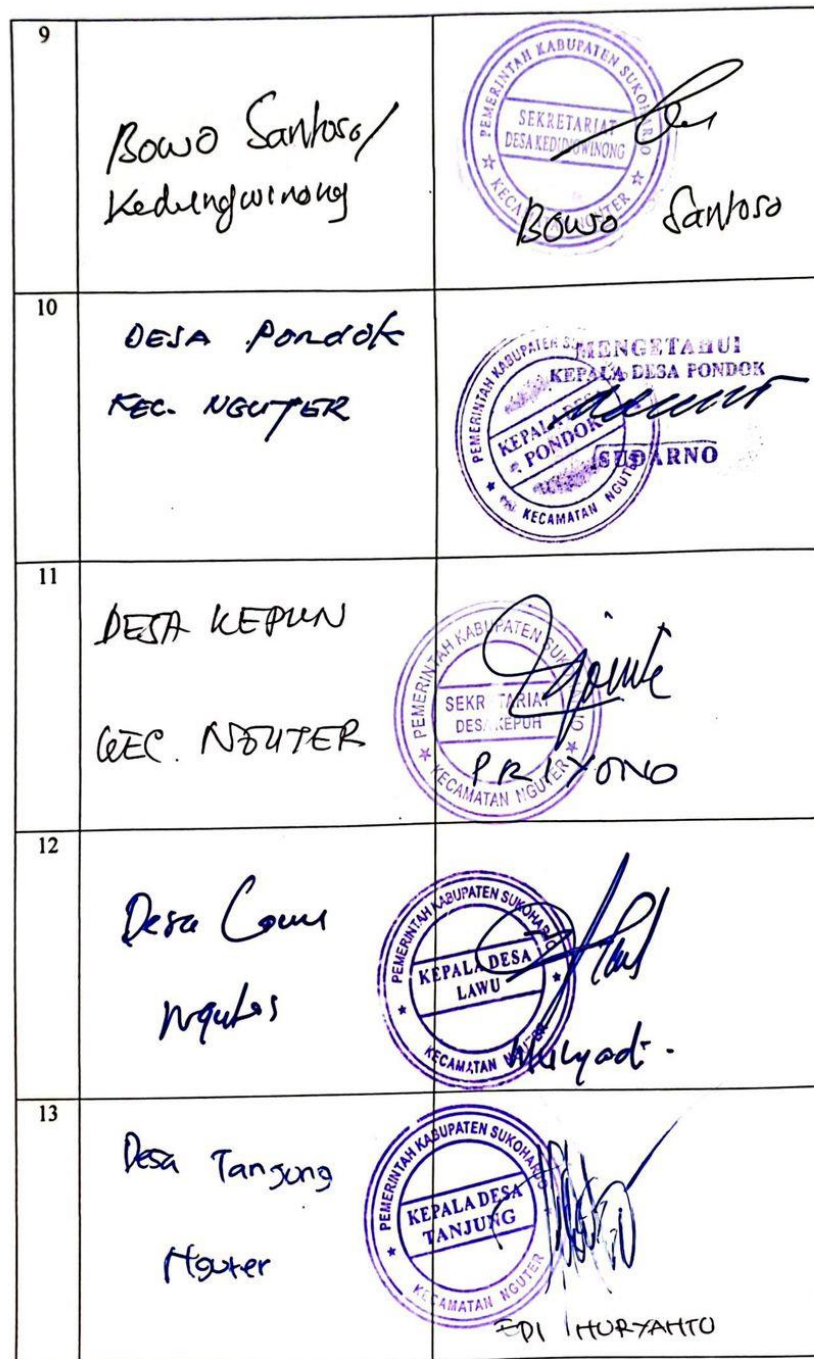 9
Bowo Santoso/
Kedungwinong
PEMERINTAH KABUPATEN SUKOHARJO
SEKRETARIAT
DESA KEDUNGWINONG
KECAMATAN NGUTER
Bowo Santoso
10
DESA Pondok
KEC. NGUTER
PEMERINTAH KABUPATEN
MENGETAHUI
KEPALA DESA PONDOK
KEPALA
PONDOK
SUDARNO
KECAMATAN NGUTER
11
DESA KEPUH
KEC. NGUTER
PEMERINTAH KABUPATEN
SEKRETARIAT
DESA KEPUH
KECAMATAN NGUTER
PRIYONO
12
Desa Lawu
Nguter
PEMERINTAH KABUPATEN SUKOHARJO
KEPALA DESA
LAWU
KECAMATAN NGUTER
Mulyadi.
13
Desa Tanjung
Nguter
PEMERINTAH KABUPATEN SUKOHARJO
KEPALA DESA
TANJUNG
KECAMATAN NGUTER
EDI HURYANTO